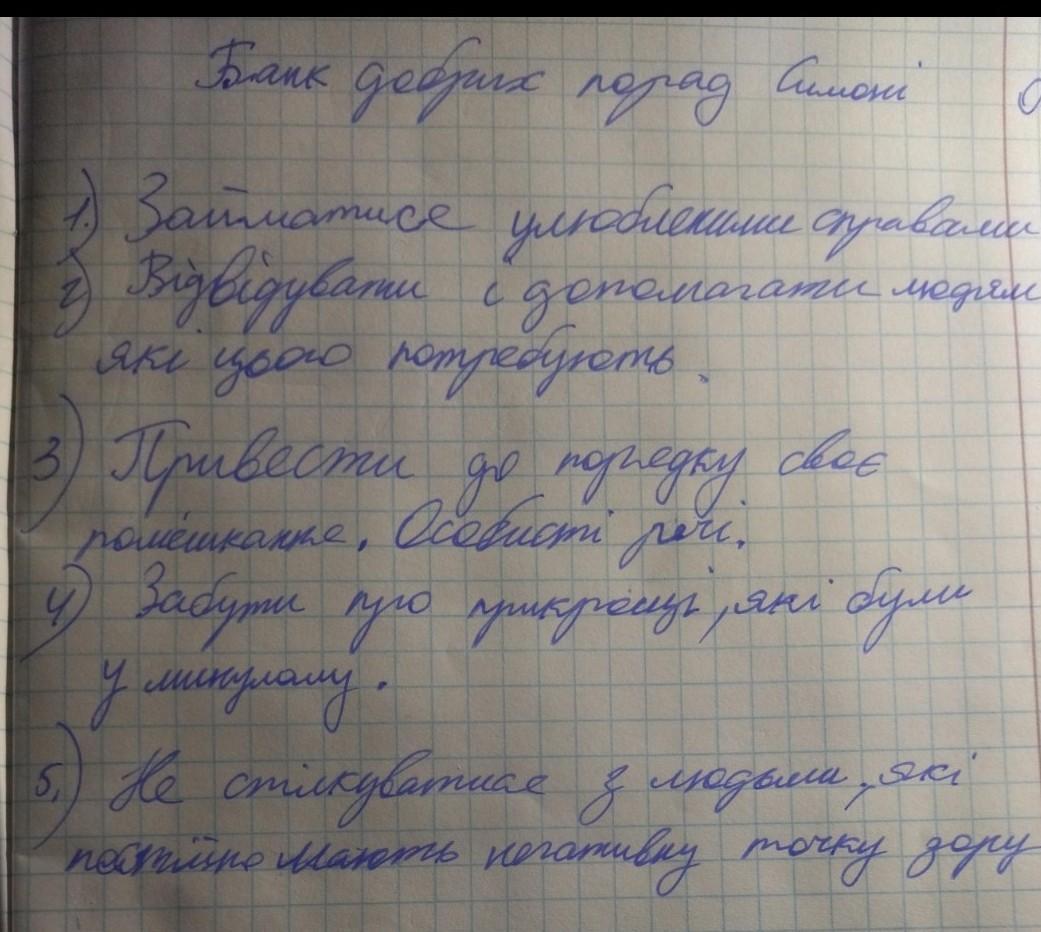 Банк добрих порад Симоні
1.) Займатися улюбленими справами
2) Відвідувати і допомагати людям
які цього потребують.
3) Привести до порядку своє
помешкання. Особисті речі.
4) Забути про прикрощі, які були
у минулому.
5.) Не спілкуватися з людьми, які
постійно мають негативну точку зору